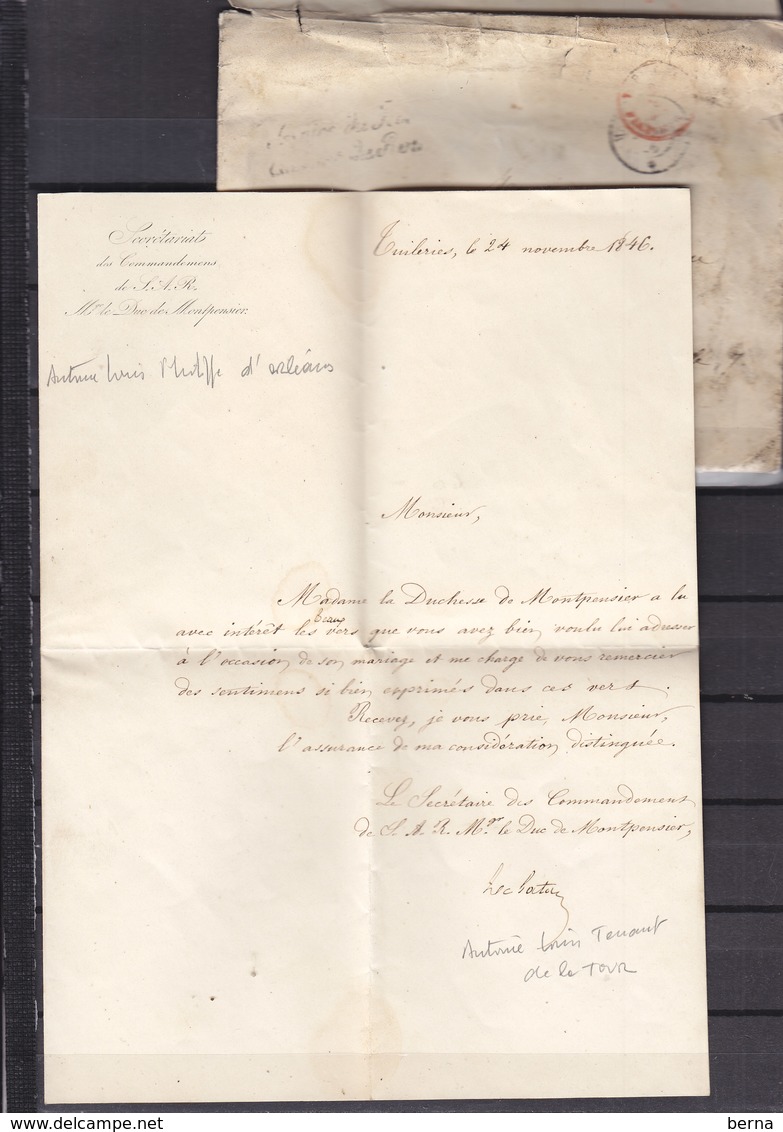 Secrétariat
des Commandemens
de S.A.R.
Mgr le Duc de Montpensier.
Tuileries, le 24 novembre 1846.
Antoine Louis Philippe d'orléans
Monsieur,
Madame la Duchesse de Montpensier a lu
avec intérêt les beaux vers que vous avez bien voulu lui adresser
à l'occasion de son mariage et me charge de vous remercier
des sentimens si bien exprimés dans ces vers.
Recevez, je vous prie, Monsieur,
l'assurance de ma considération distinguée.
Le Secrétaire des Commandemens
de S. A. R. Mgr le Duc de Montpensier,
Antoine Louis Tenant
de la TOUR
berna